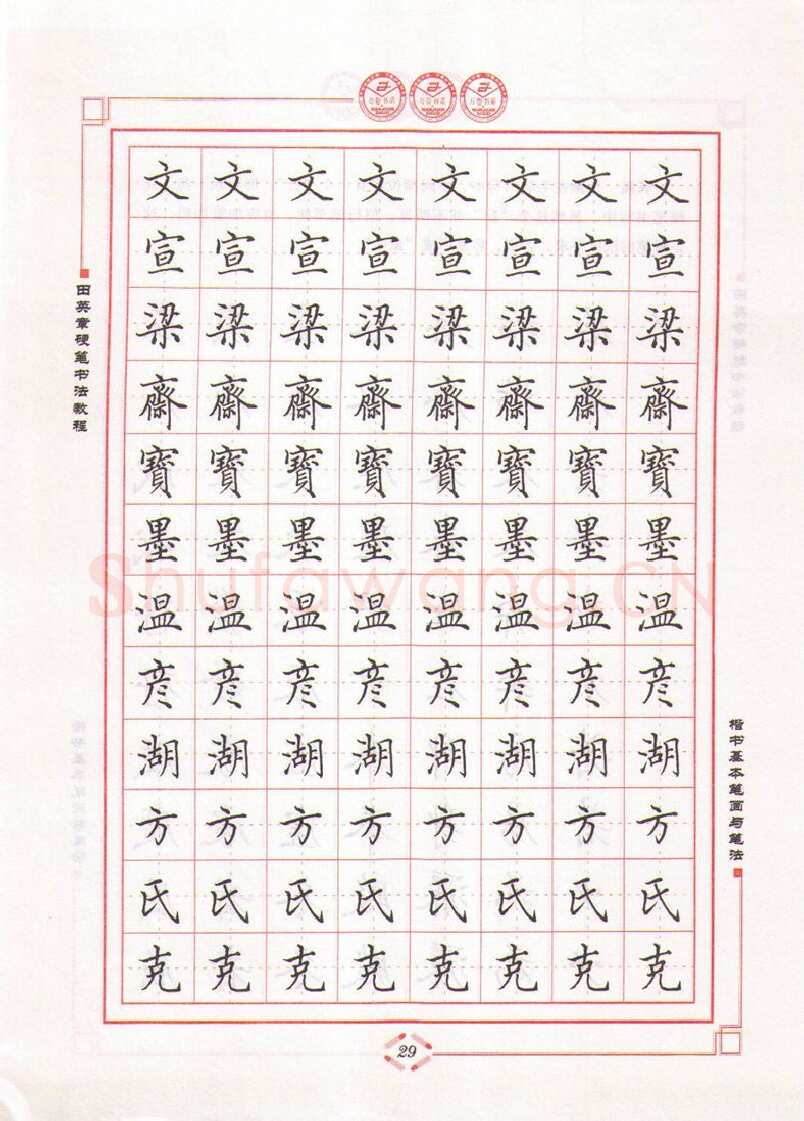 田英章硬笔书法教程
文文文文文文文文
宣宣宣宣宣宣宣宣
梁梁梁梁梁梁梁梁
齋齋齋齋齋齋齋齋
寶寶寶寶寶寶寶寶
墨墨墨墨墨墨墨墨
Shufawang.CN
温温温温温温温温
彦彦彦彦彦彦彦彦
湖湖湖湖湖湖湖湖
方方方方方方方方
氏氏氏氏氏氏氏氏
克克克克克克克克
楷书基本笔画与笔法
29